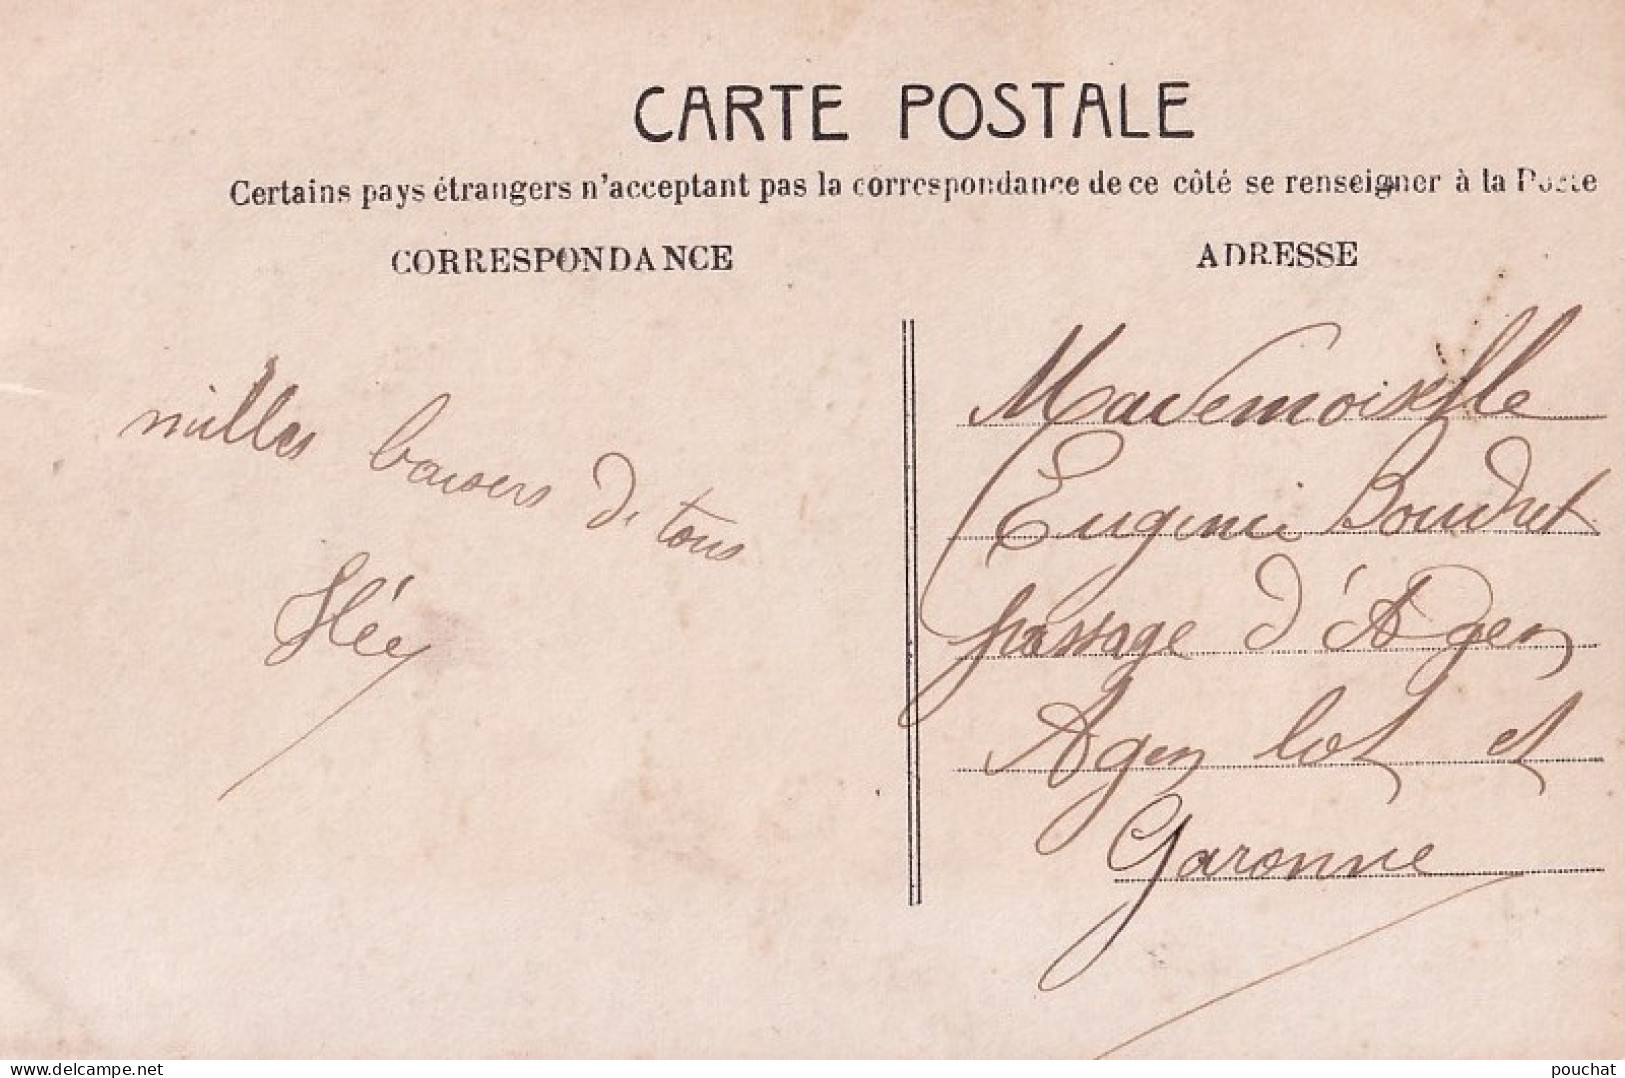 CARTE POSTALE
Certains pays étrangers n'acceptant pas la correspondance de ce côté se renseigner à la Poste
CORRESPONDANCE
ADRESSE
milles baisers de tous
Mademoiselle
Eugenie Boudret
passage d'Agen
Agen lot et
Garonne
delcampe.net
pouchat